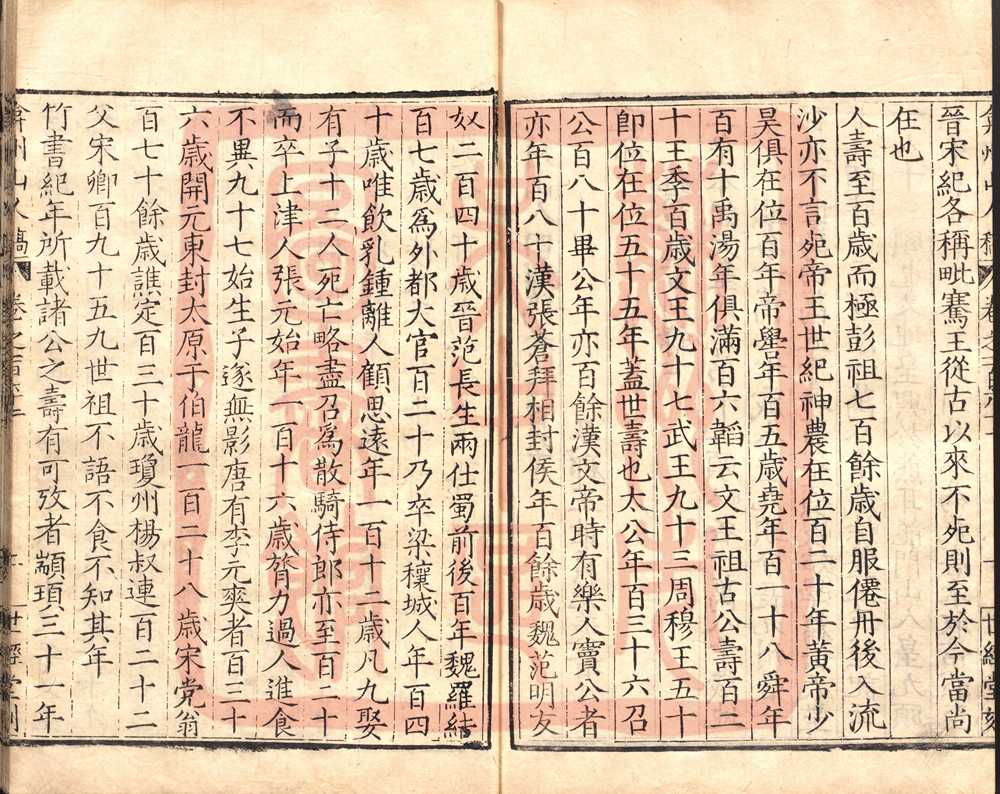 晉宋紀各稱毗騫王從古以來不死則至於今當尚
在也
人壽至百歲而極彭祖七百餘歲自服僊丹後入流
沙亦不言死帝王世紀神農在位百二十年黃帝少
昊俱在位百年帝嚳年百五歲堯年百一十八舜年
百有十禹湯年俱滿百六韜云文王祖古公壽百二
十王季百歲文王九十七武王九十三周穆王五十
卽位在位五十五年蓋世壽也太公年百三十六召
公百八十畢公年亦百餘漢文帝時有樂人竇公者
亦年百八十漢張蒼拜相封侯年百餘歲魏范明友
奴二百四十歲晉范長生兩仕蜀前後百年魏羅結
百七歲爲外都大官百二十乃卒梁穰城人年百四
十歲唯飲乳鍾離人顧思遠年一百十二歲凡九娶
有子十二人死亡略盡召爲散騎侍郎亦至百二十
而卒上津人張元始年一百十六歲膂力過人進食
不異九十七始生子遂無影唐有李元爽者百三十
六歲開元東封太原于伯龍一百二十八歲宋党翁
百七十餘歲譙定百三十歲瓊州楊叔連百二十二
父宋卿百九十五九世祖不語不食不知其年
竹書紀年所載諸公之壽有可攷者顓頊三十一年
弇州山人稿 卷之百
世經堂刻